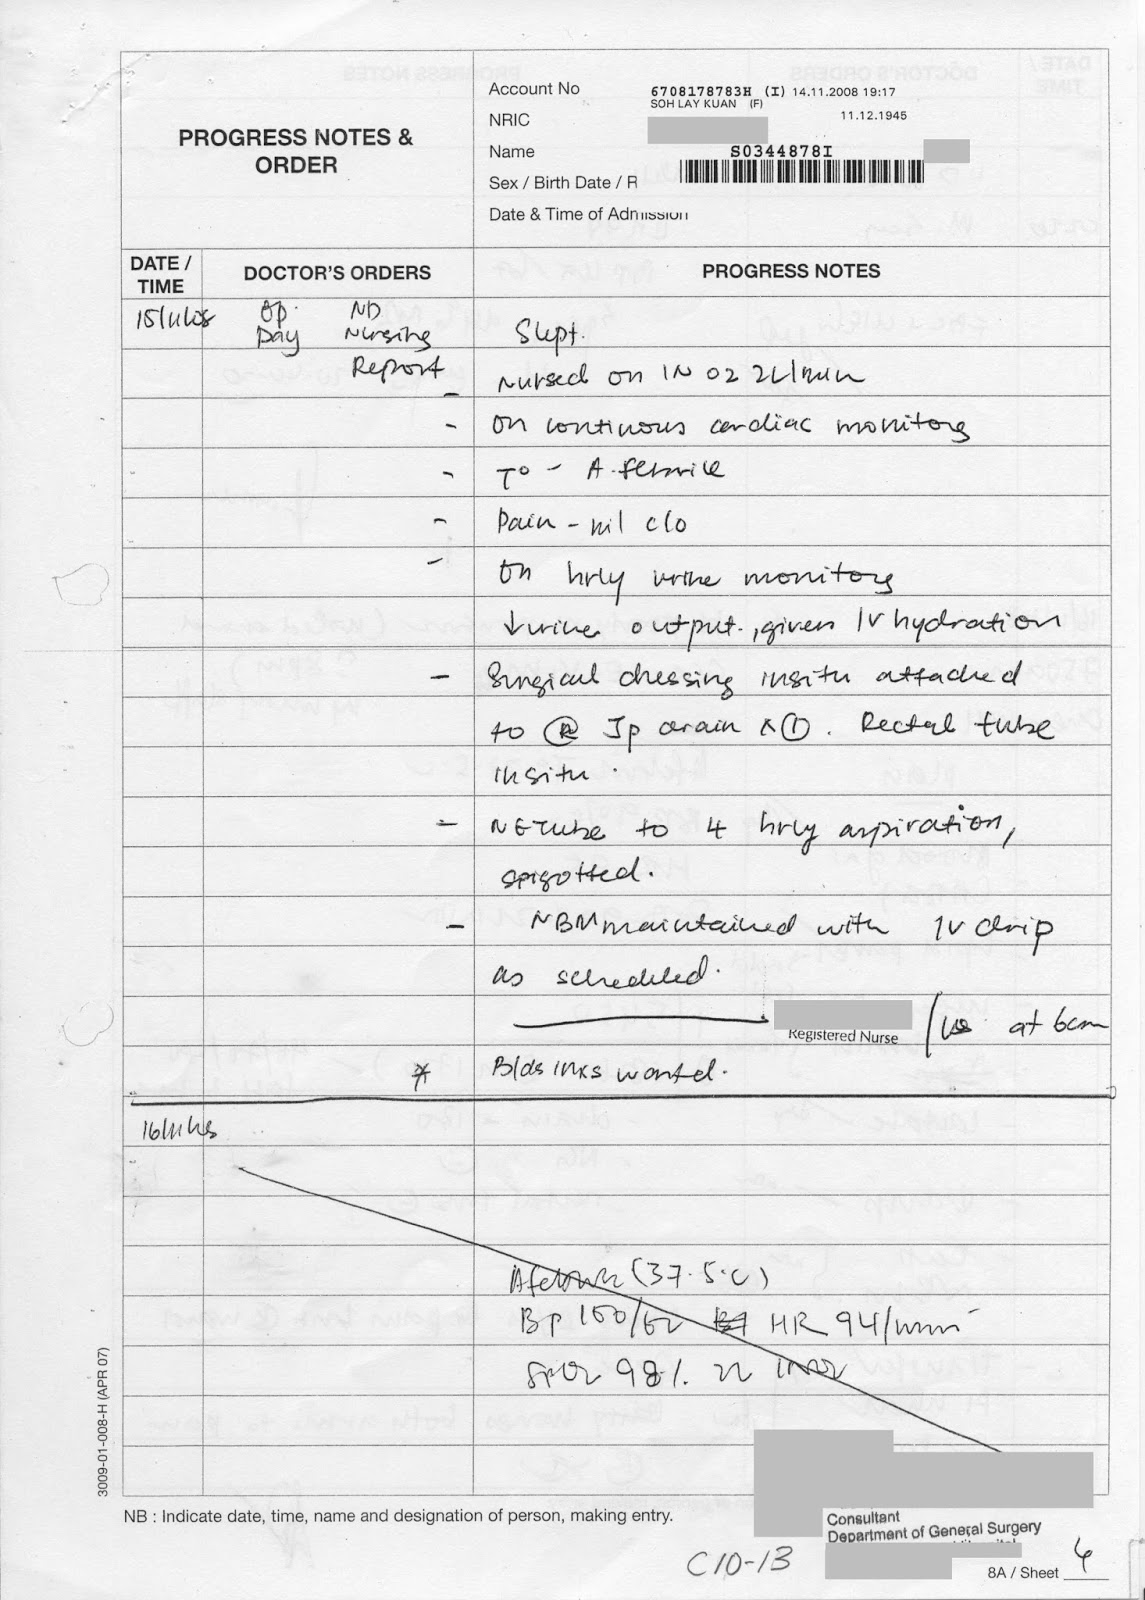 PROGRESS NOTES & ORDER
Account No 6708178783H (I) 14.11.2008 19:17
SOH LAY KUAN (F)
NRIC 11.12.1945
Name S0344878I
Sex / Birth Date / R
Date & Time of Admission
DATE / TIME DOCTOR'S ORDERS PROGRESS NOTES
15/11/08 Op. ND
Day Nursing Slept.
Report Nursed on IN O2 2L/min
- on continous cardiac monitorg
- T° - A.febrile
- Pain - nil c/o
- On hrly urine monitorg
↓urine output, given IV hydration
- Surgical dressing insitu attached
to Ⓡ Jp drain x①. Rectal tube
insitu.
- NG Tube to 4 hrly aspiration,
spigotted.
- NBM maintained with IV drip
as scheduled.
Registered Nurse at 6am
*
16/11/08
Afebrile (37.5°C)
HR 94/min
SpO2 98%
3009-01-008-H (APR 07)
NB : Indicate date, time, name and designation of person, making entry.
Consultant
Department of General Surgery
C10-13
8A / Sheet 6